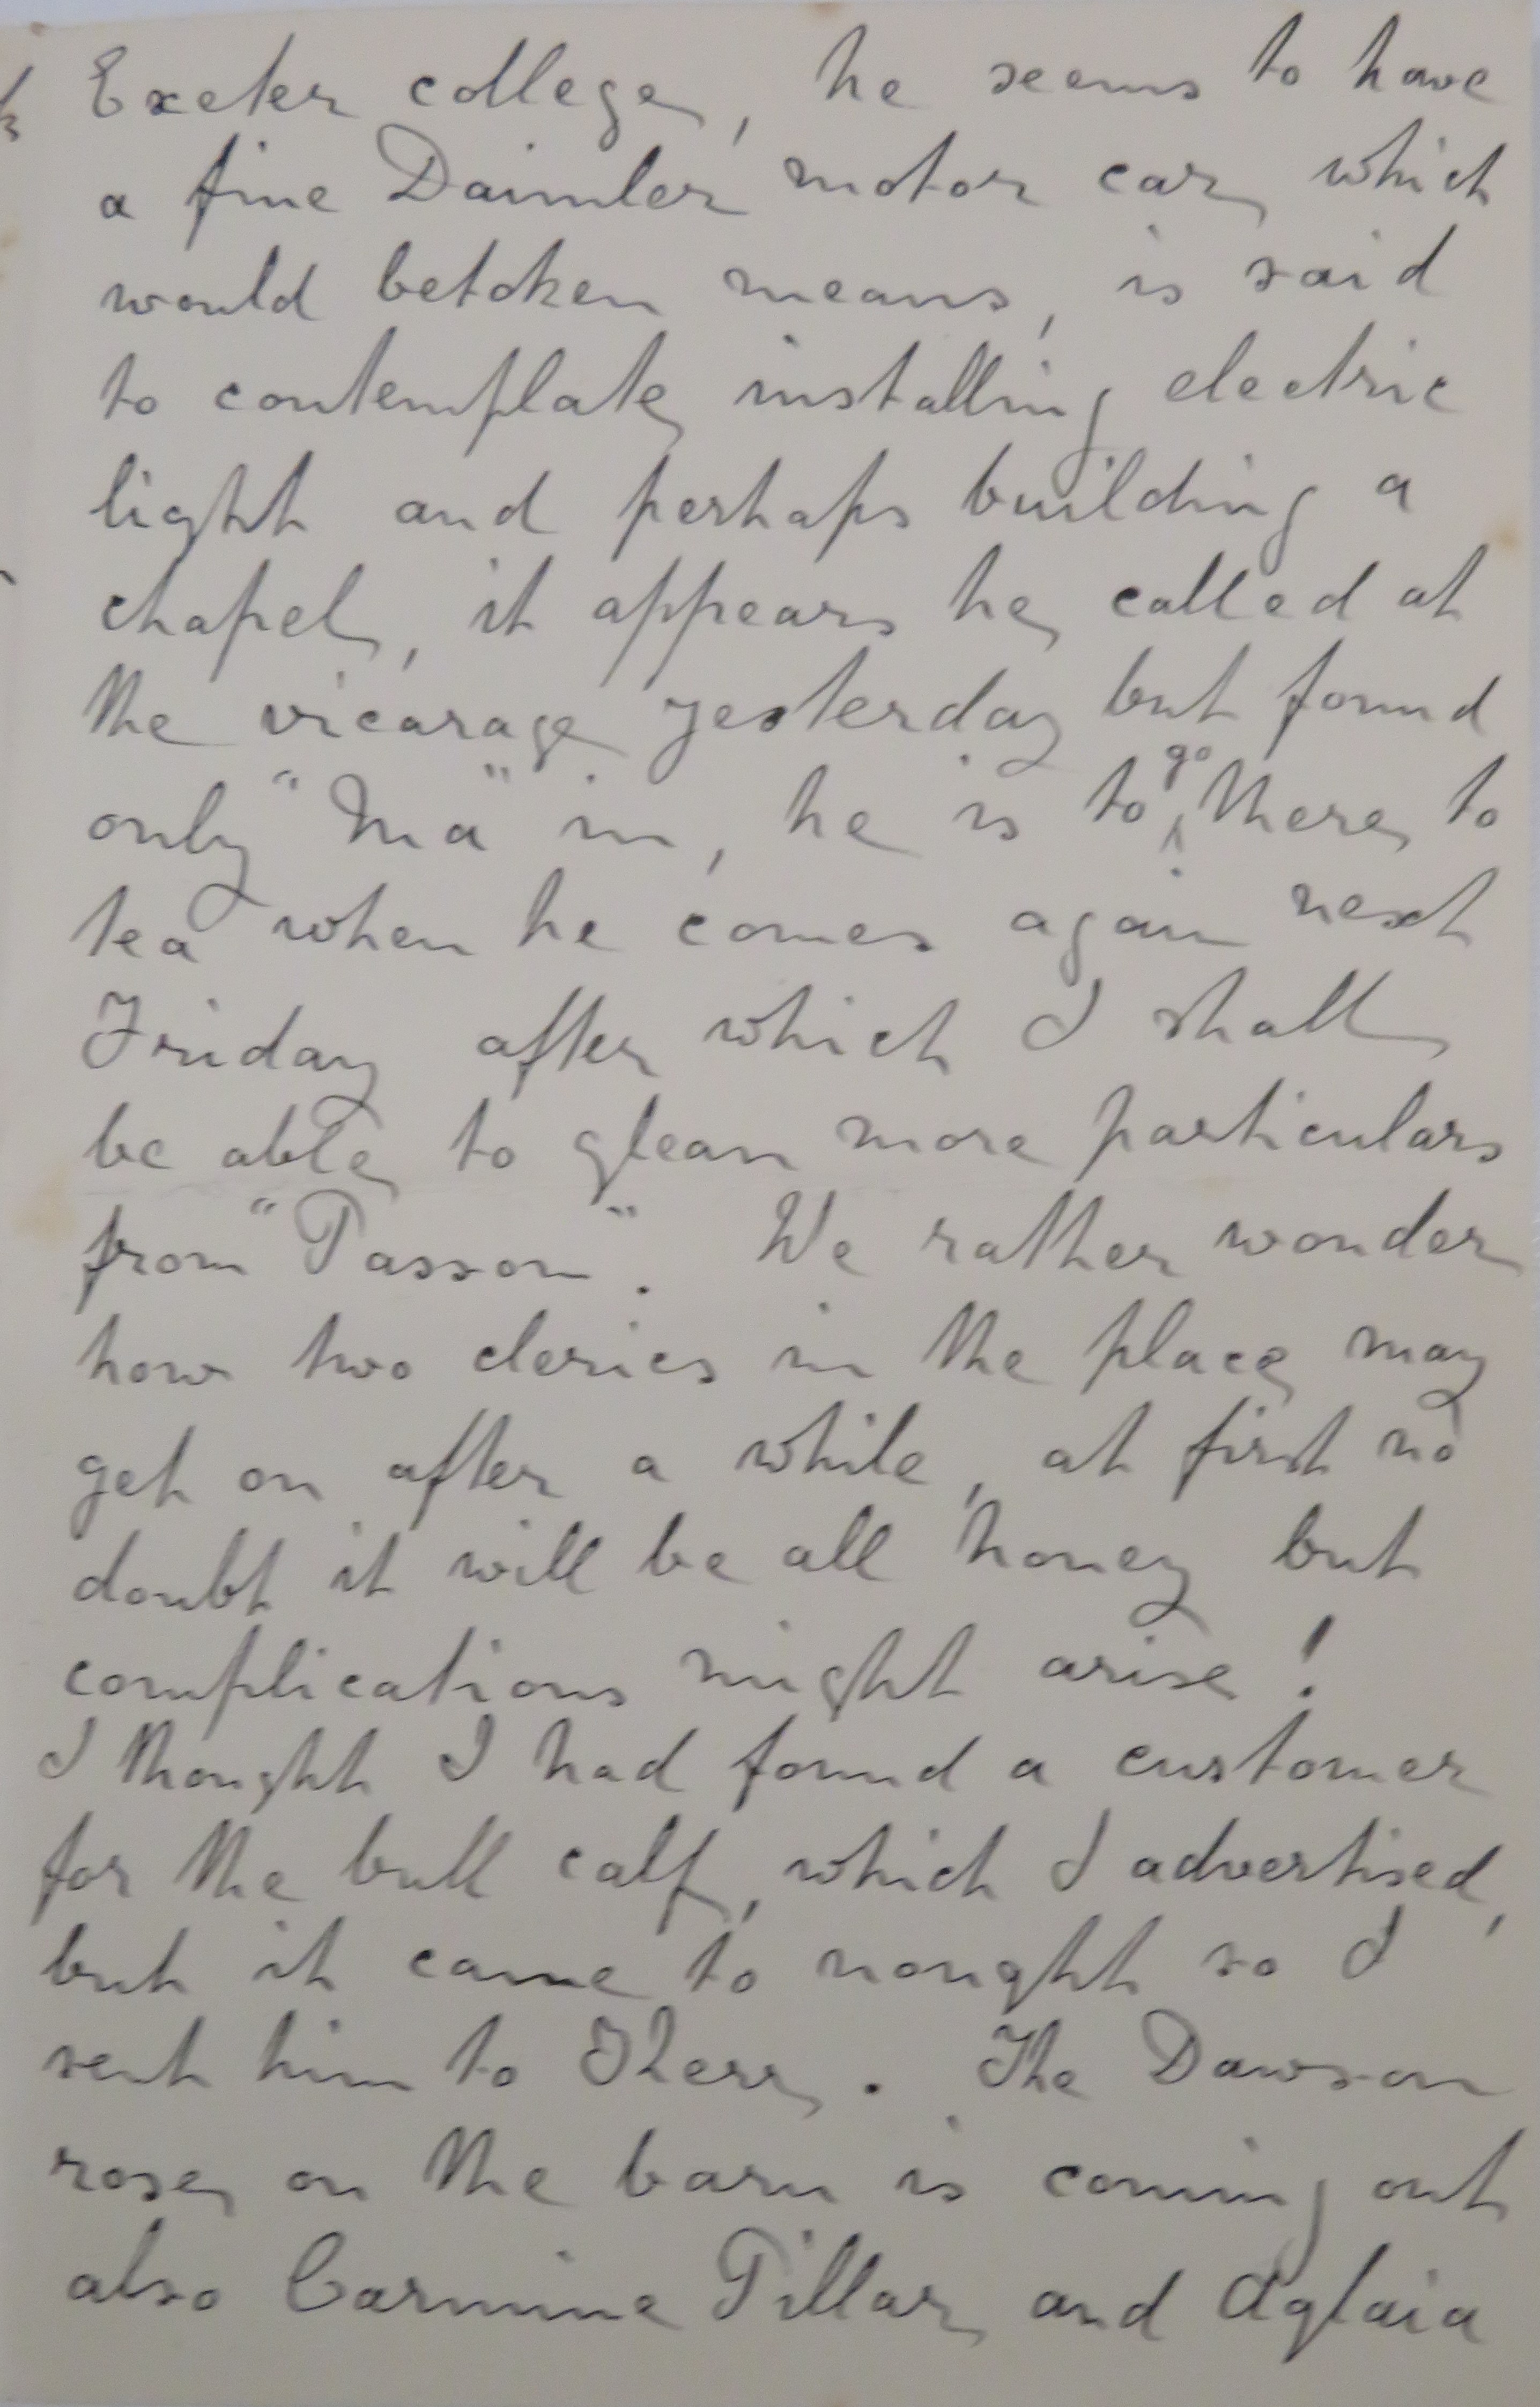 Exeter college, he seems to have
a fine Daimler motor car, which
would betoken means, is said
to contemplate installing electric
light and perhaps building a
chapel, it appears he called at
the vicarage yesterday but found
only "Ma" in, he is to go there to
tea when he comes again next
Friday after which I shall
be able to glean more particulars
from "Passon". We rather wonder
how two clerics in the place may
get on after a while, at first no
doubt it will be all honey but
complications might arise!
I thought I had found a customer
for the bull calf, which I advertised,
but it came to nought so I
sent him to . The Dawson
rose on the barn is coming out
also Carmine Pillar and Aglaia